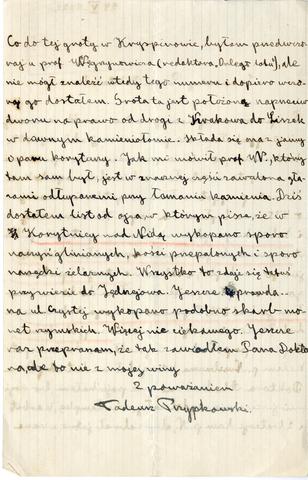 Co do tej groty w Kryspinowie, byłem przedwczo
raj u prof. Węgrzynowicza (redaktora „Orlego Lotu"), ale
nie mógł znaleźć wtedy tego numeru i dopiero wczo
raj go dostałem. Grota ta jest położoną naprzeciw
dworu na prawo od drogi z Krakowa do Liszek
w dawnym kamieniołomie. Składa się ona z jamy
opar korytarzy. Jak mi mówił prof W., który
tam sam był, jest w znacznej części zawalona gła
zami odłupanemi przy łamaniu kamienia. Dziś
dostałem list od ojca w którym pisze, że w
Korytnicy nad Nidą wykopano sporo
naczyń glinianych, kości przepalonych i sporo
narzędzi żelaznych. Wszystko to zdaje się tatuś
przywiezie do Jędrzejowa. Jeszcze wprawdzie
na ul. Czystej wykopano podobno skarb mo
net rzymskich. Więcej nic ciekawego. Jeszcze
raz przepraszam, że tak zawiodłem Pana Dokto
ra, ale to nie z mojej winy
Z poważaniem
Tadeusz Przypkowski.